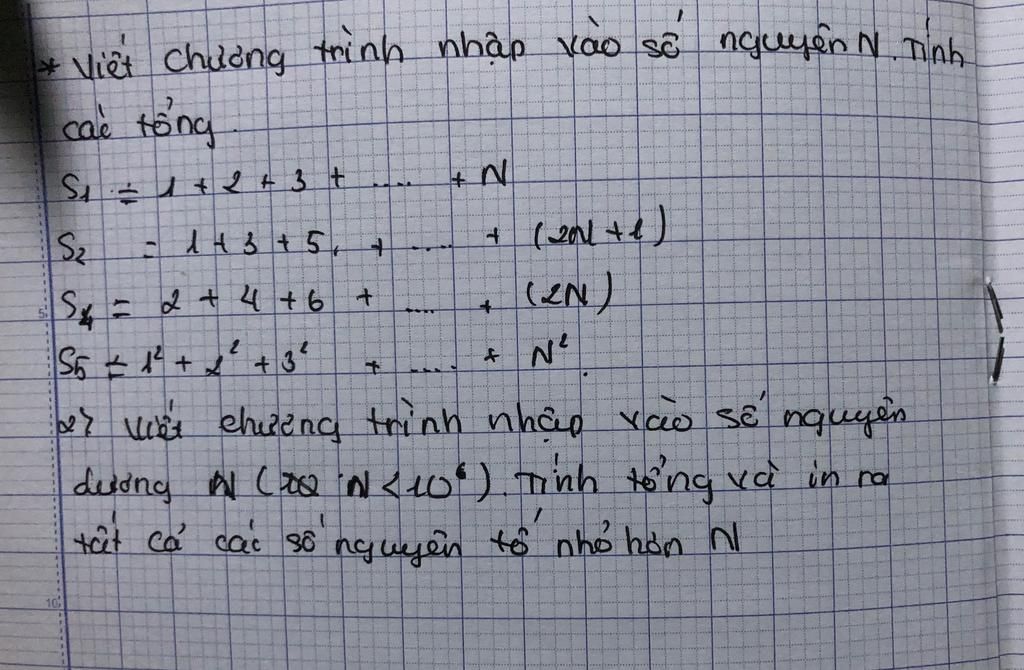 * Viết chương trình nhập vào số nguyên N. Tính
các tổng.
S1 = 1 + 2 + 3 + .... + N
S2 = 1 + 3 + 5 + .... + (2N + 1)
S4 = 2 + 4 + 6 + .... + (2N)
S5 = 1² + 2² + 3² + .... + N².
2> Viết chương trình nhập vào số nguyên
dương N (N < 10⁶). Tính tổng và in ra
tất cả các số nguyên tố nhỏ hơn N
5
10